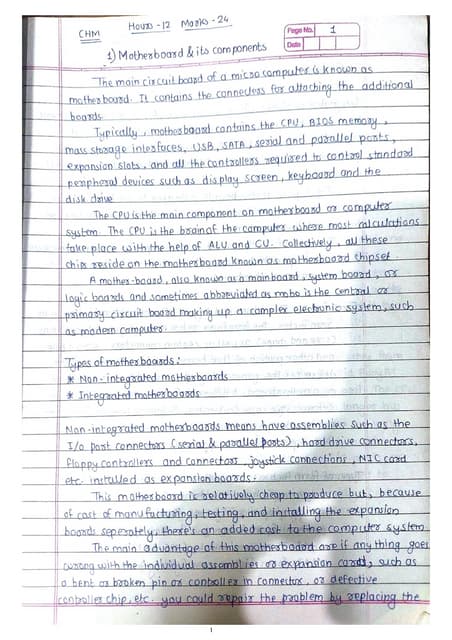 CHM Hours - 12 Marks - 24
Page No. 1
Date
1) Motherboard & its components
The main circuit board of a micro computer is known as
motherboard. It contains the connectors for attaching the additional
boards.
Typically, motherboard contains the CPU, BIOS memory,
mass storage interfaces, USB, SATA, serial and parallel ports,
expansion slots, and all the controllers required to control standard
peripheral devices such as display screen, keyboard and the
disk drive
The CPU is the main component on motherboard or computer
system. The CPU is the brain of the computer where most calculations
take place with the help of ALU and CU. Collectively, all these
chips reside on the motherboard known as motherboard chipset.
A mother-board, also known as a mainboard, system board, or
logic boards and sometimes abbreviated as mobo is the central or
primary circuit board making up a complex electronic system, such
as modern computer.
Types of motherboards:
* Non-integrated motherboards
* Integrated motherboards
Non-integrated motherboards means have assemblies such as the
I/o port connectors (serial & parallel ports), hard drive connectors,
floppy controllers and connectors, joystick connections, NIC card
etc. installed as expansion boards.
This motherboard is relatively cheap to produce but, because
of cost of manufacturing, testing, and installing the expansion
boards seperately, there's an added cost to the computer system
The main advantage of this motherboard are if any thing goes
wrong with the individual assemblies or expansion card, such as
a bent or broken pin or controller in connector, or defective
controller chip, etc. you could repair the problem by replacing the
1